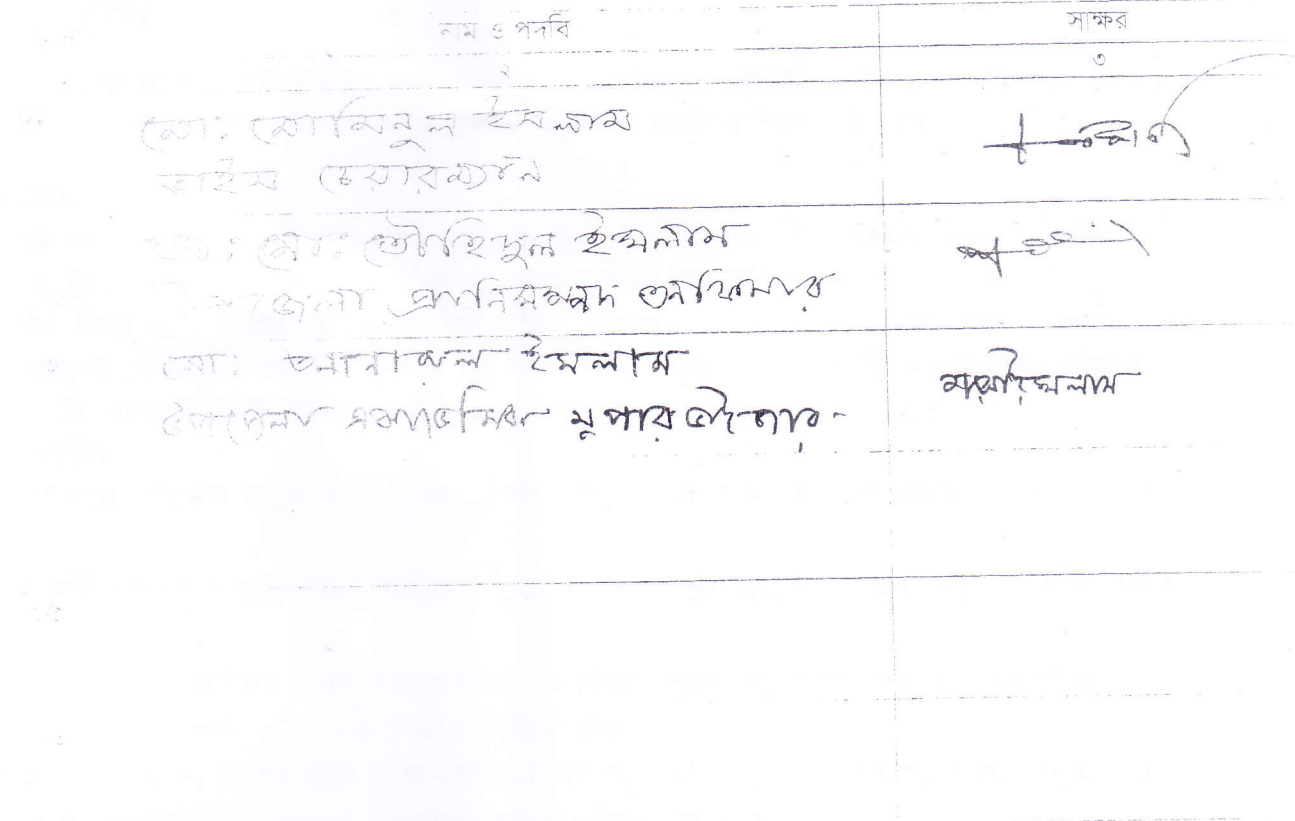 নাম ও পদবি সাক্ষর
২ ৩
মো: মোমিনুল ইসলাম
ভাইস চেয়ারম্যান
ডা: মো: তৌহিদুল ইসলাম
উপজেলা প্রানিসম্পদ অফিসার
মো: ইসলাম
উপজেলা একাডেমিক সুপারভাইজার